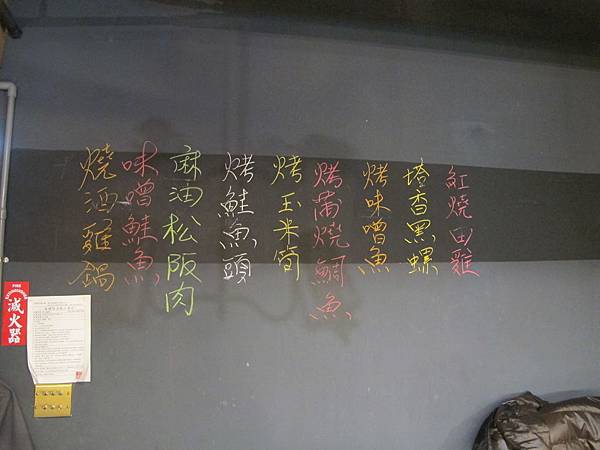 紅燒田雞
塔香黑螺
烤味噌魚
烤蒲燒鯛魚
烤玉米筍
烤鮭魚頭
麻油松阪肉
味噌鮭魚
燒酒雞鍋
FIRE
滅火器